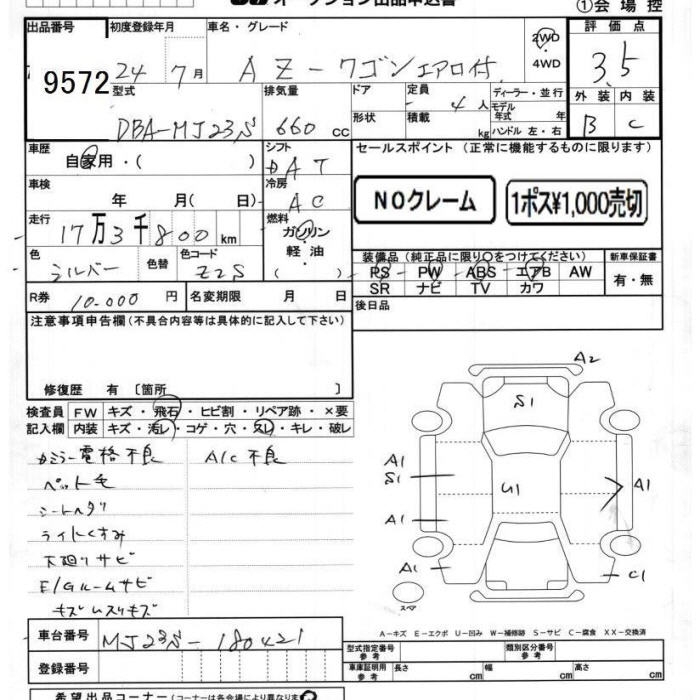 オークション出品申込書 ①会場控
出品番号 初度登録年月 車名・グレード 2WD 評価点
9572 24年7月 AZ-ワゴン エアロ付 4WD 3.5
型式 排気量 ドア 定員 ディーラー・並行 外装 内装
DBA-MJ23S 660cc 形状 4人 モデル年式 年 B C
積載 kg ハンドル 左・右
車歴 シフト セールスポイント (正常に機能するものに限ります)
自家用・( ) DAT
車検 年 月( 日) 冷房 AC NOクレーム 1ポス¥1,000売切
走行 17万3千800km 燃料 ガソリン
軽油・( )
色 シルバー 色替 色コード Z2S 装備品(純正品に限り○をつけてください) 新車保証書
PS PW ABS エアB AW 有・無
R券 10.000円 名変期限 月 日 SR ナビ TV カワ
注意事項申告欄(不具合内容等は具体的に記入して下さい) 後日品
修復歴 有〔箇所 〕
検査員 FW キズ・飛石・ヒビ割・リペア跡・×要
記入欄 内装 キズ・汚レ・コゲ・穴・スレ・キレ・破レ
カミラー電格不良 A/C不良
ペット毛
シートヘタリ
ライトくすみ
下廻りサビ
E/Gルームサビ
キズ ムスリキズ
A2
S1
A1
S1
U1
A1
A1
A1
C1
スペア
A-キズ E-エクボ U-凹み W-補修跡 S-サビ C-腐食 XX-交換済
車台番号 MJ23S-180421 型式指定番号 参考 類別区分番号 参考
登録番号 車庫証明用 参考 長さ cm 幅 cm 高さ cm
希望出品コーナー(各会場により異なります